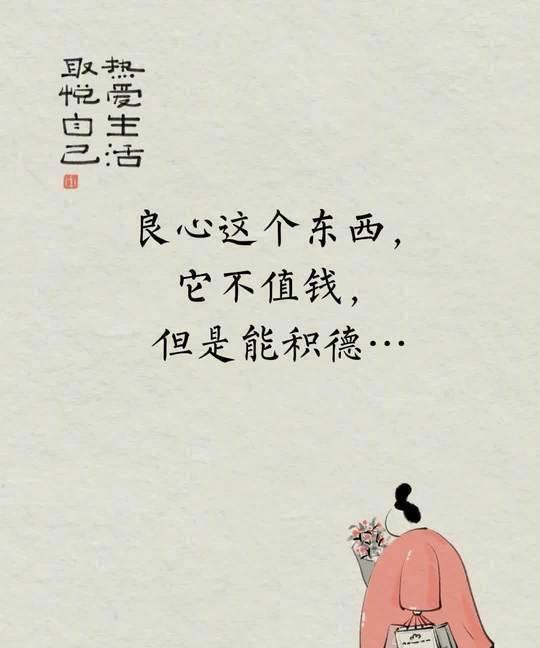 热爱生活
取悦自己
良心这个东西，
它不值钱，
但是能积德…